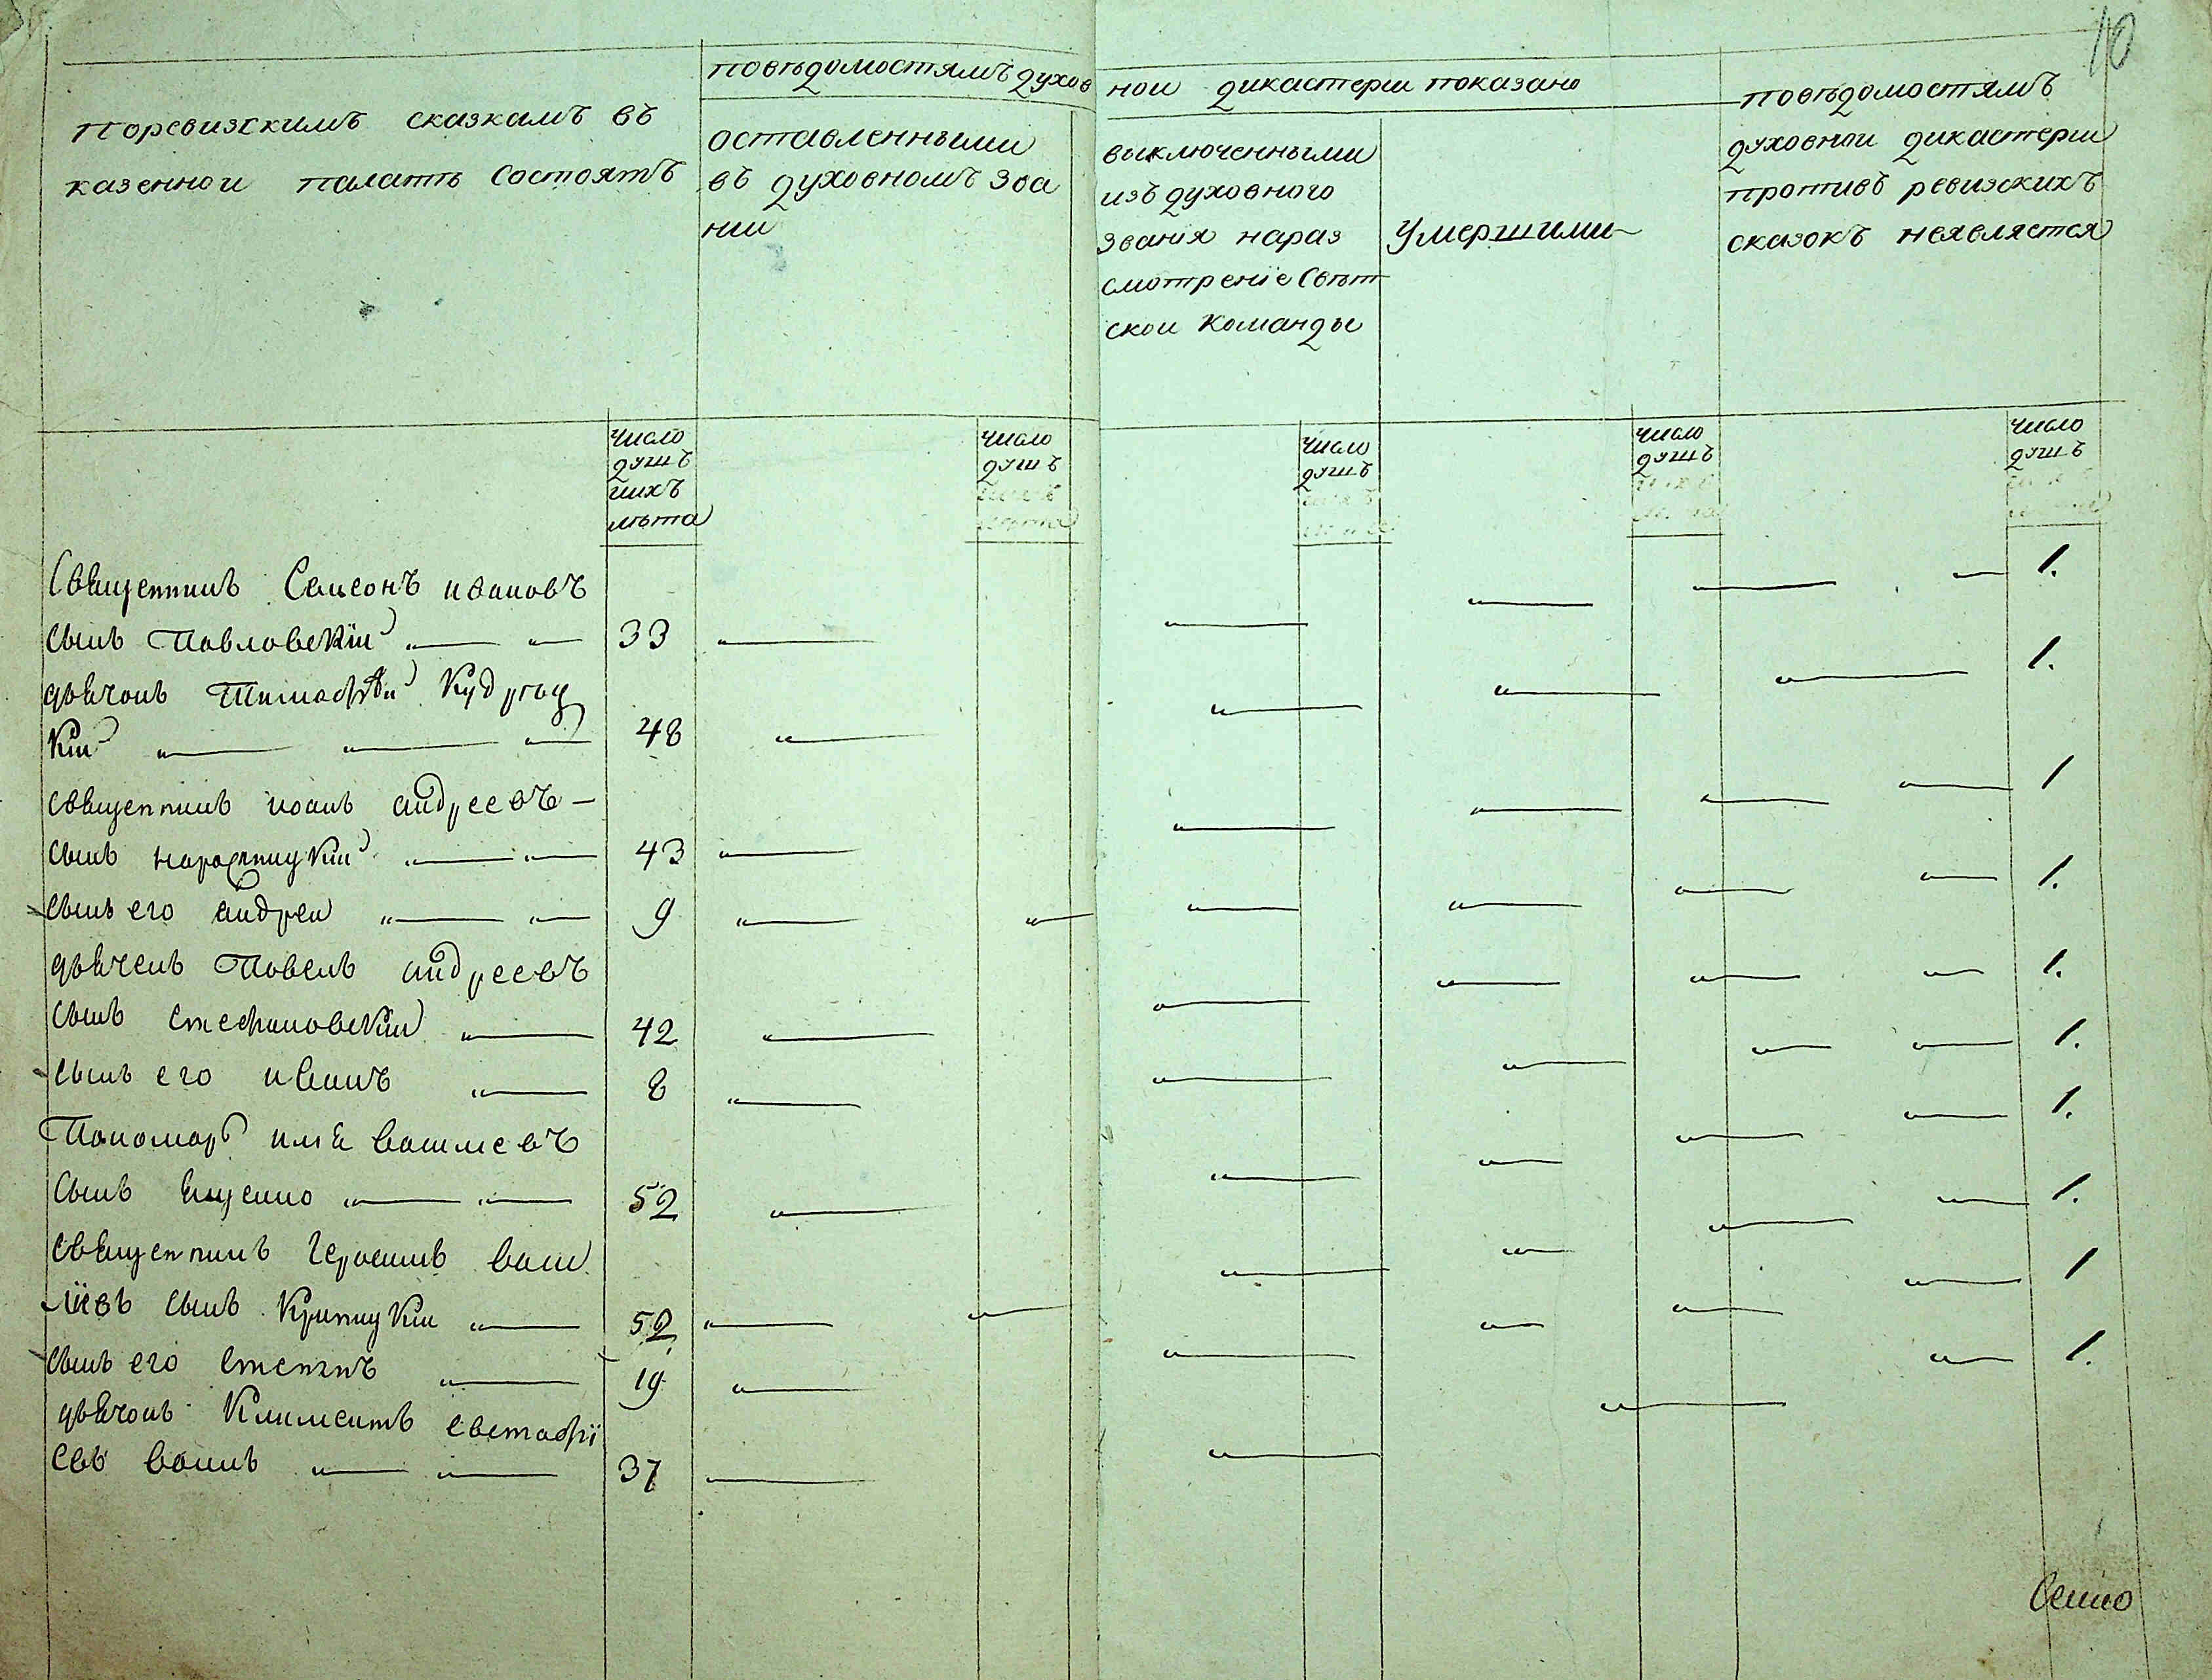 10
поревизскимъ сказкамъ въ
казеннои палатѣ состоятъ
повѣдомостямъ духов
нои дикастерии показано
оставленными
въ духовномъ зва
нии
выключенными
изъ духовного
званія нараз
смотреніе свѣт
скои команды
умершими
повѣдомостямъ
духовнои дикастерии
противъ ревизскихъ
сказокъ неявляется
число
душъ
иихъ
лѣта
число
душъ
число
душъ
число
душъ
число
душъ
Священникъ Самсонъ ивановъ
сынъ Павловскіи 33 1.
дьячокъ Тимофѣи 1.
кіи 48
священникъ иоанъ андреевъ
сынъ 43 1
сынъ его андреи 9 1.
дьячекъ Павелъ андреевъ
сынъ стефановскіи 42 1.
сынъ его иванъ 8 1.
Пономарь илья василиевъ
сынъ ященко 52 1.
священникъ Герасимъ васи
лїевъ сынъ 52 1.
сынъ его степанъ 19 1
дьячокъ Климентъ евстафї
евъ 37 1.